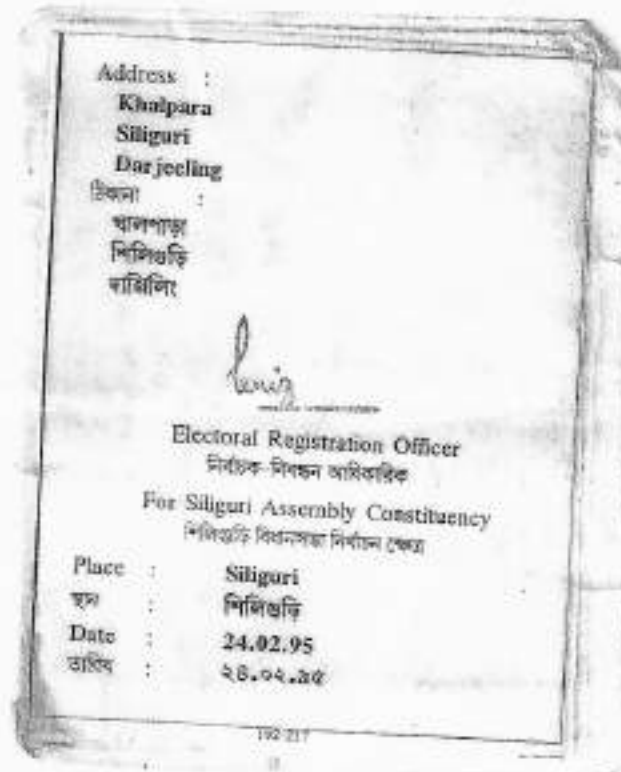 Address :
Khalpara
Siliguri
Darjeeling
ঠিকানা :
খালপাড়া
শিলিগুড়ি
দার্জিলিং
Electoral Registration Officer
নির্বাচক নিবন্ধন আধিকারিক
For Siliguri Assembly Constituency
শিলিগুড়ি বিধানসভা নির্বাচন ক্ষেত্র
Place : Siliguri
স্থান : শিলিগুড়ি
Date : 24.02.95
তারিখ : ২৪.০২.৯৫
192 217